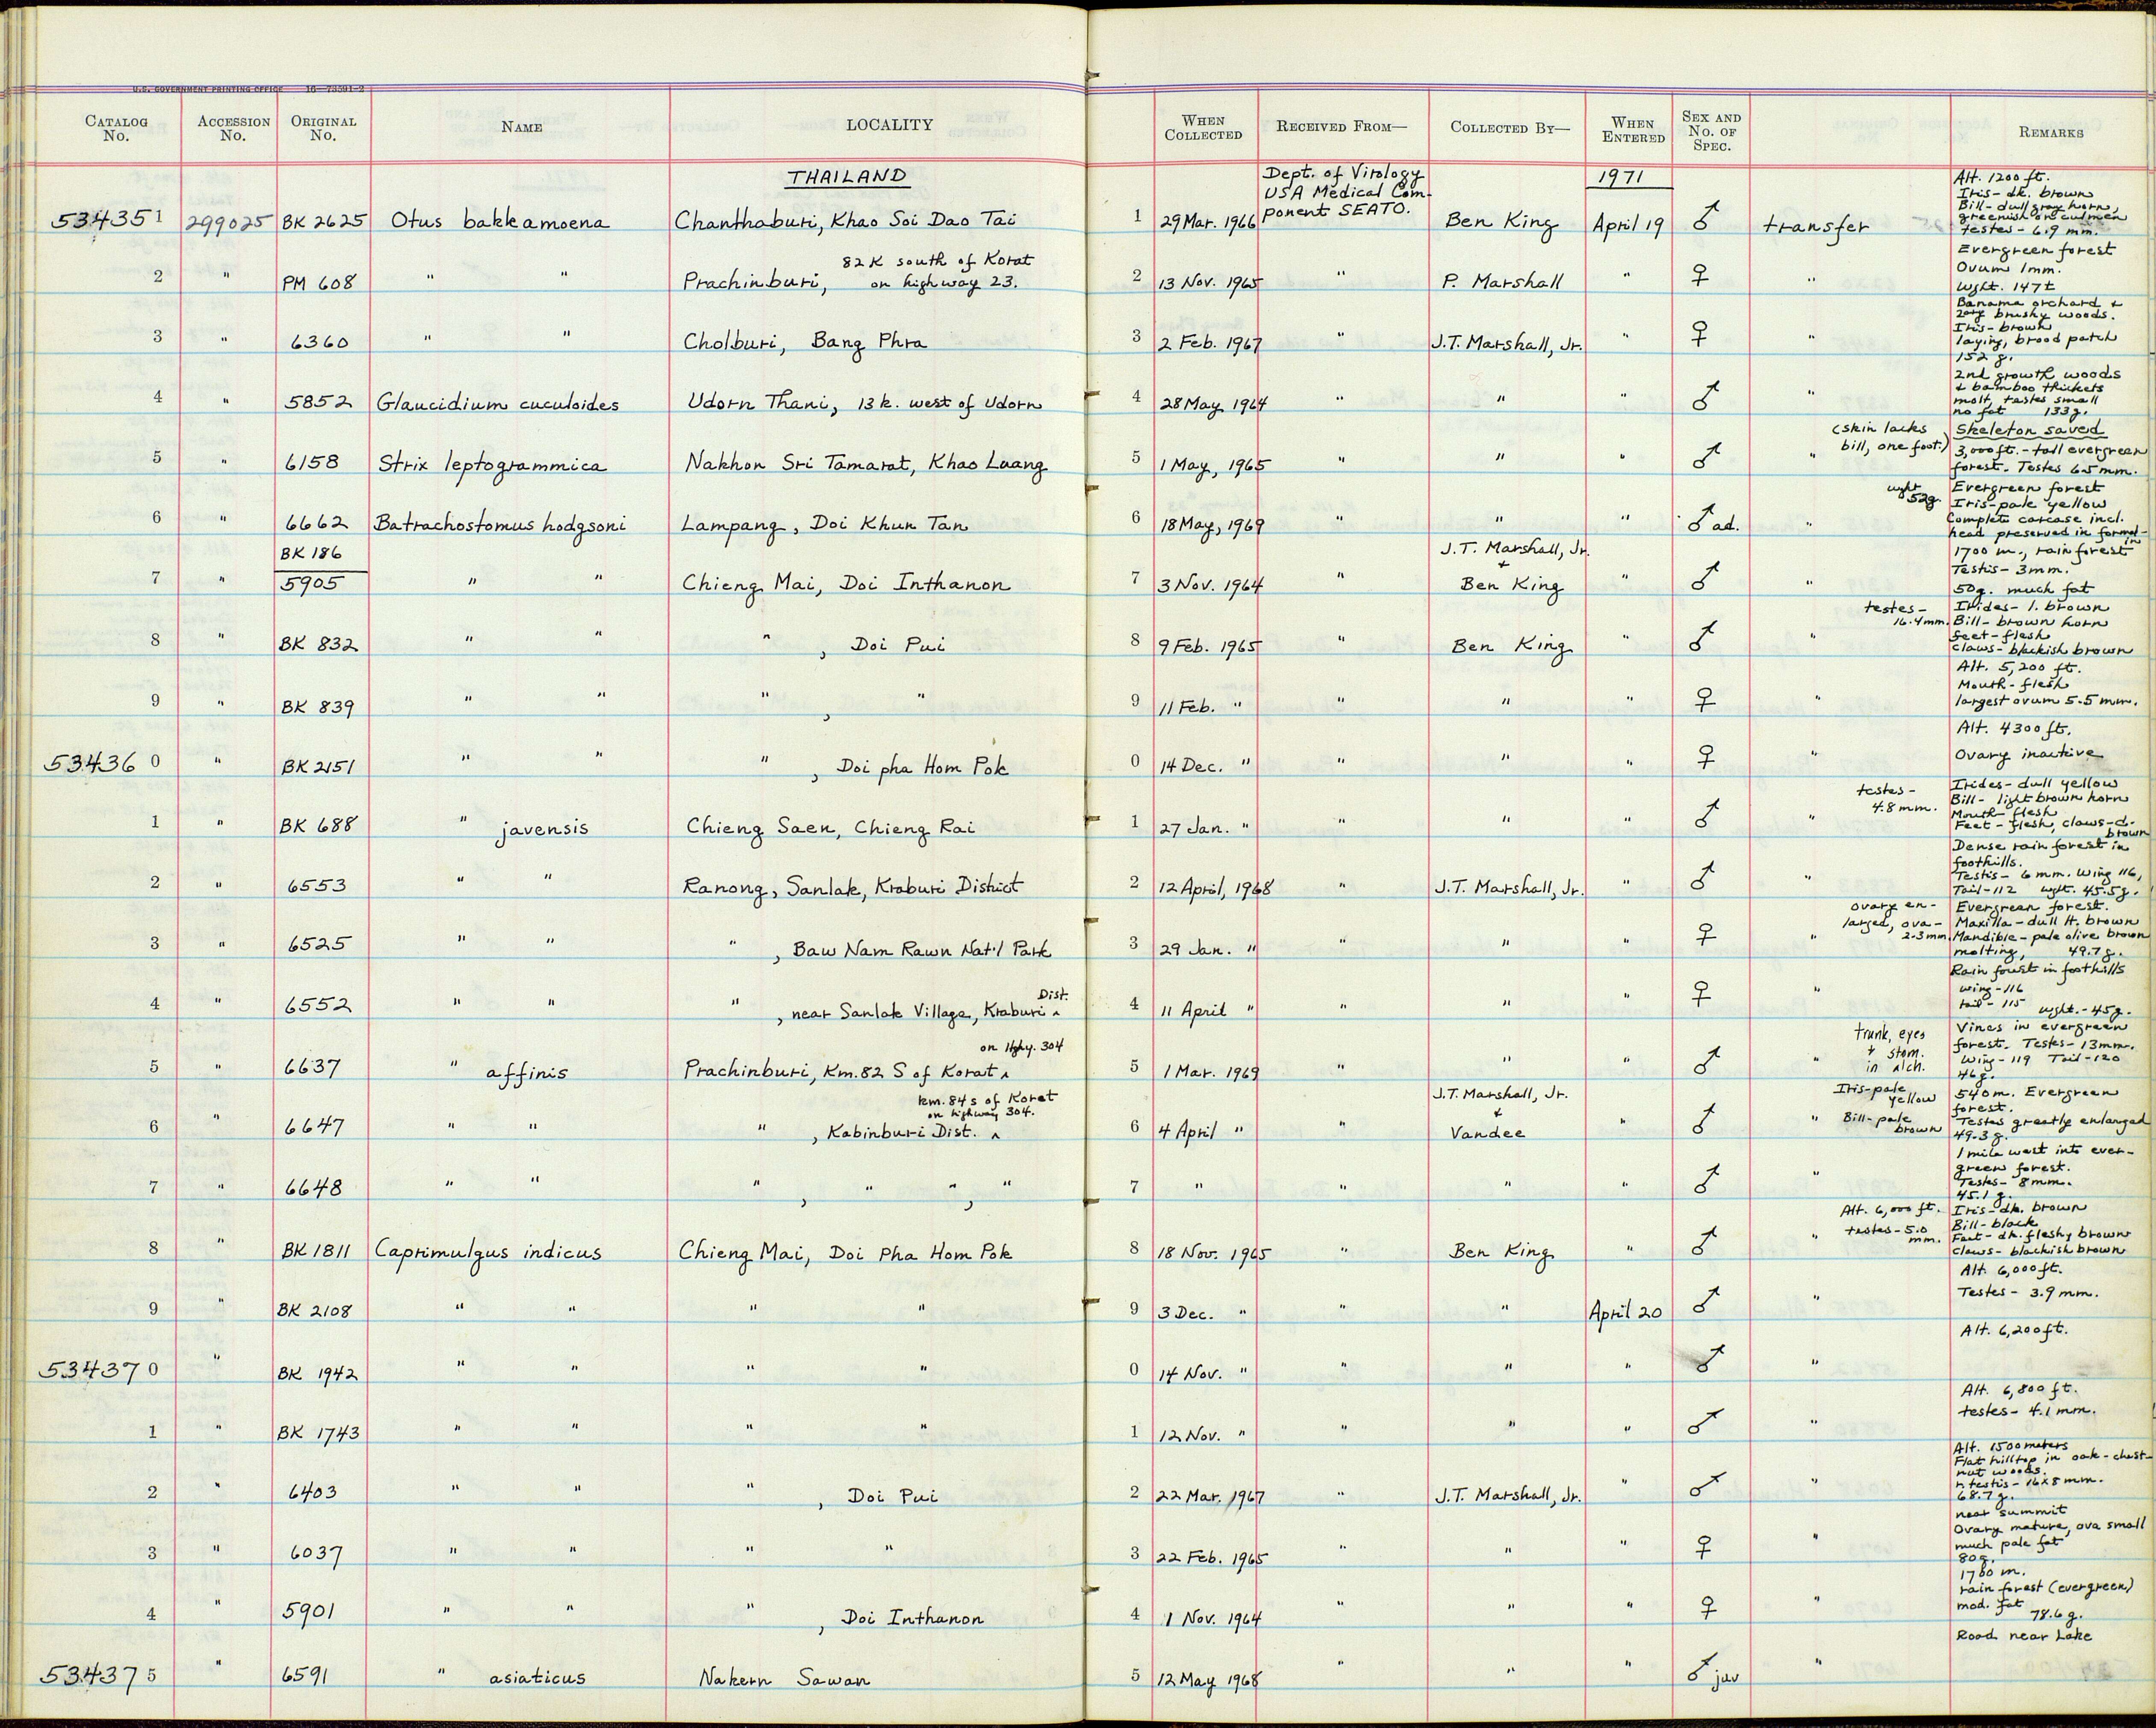 U.S. GOVERNMENT PRINTING OFFICE 16—73591-2
CATALOG No. ACCESSION No. ORIGINAL No. NAME LOCALITY WHEN COLLECTED RECEIVED FROM— COLLECTED BY— WHEN ENTERED SEX AND No. OF SPEC. REMARKS
THAILAND Dept. of Virology USA Medical Component SEATO. 1971
534351 299025 BK 2625 Otus bakkamoena Chanthaburi, Khao Soi Dao Tai 1 29 Mar. 1966 Ben King April 19 ♂ transfer Alt. 1200 ft. Iris- dk. brown Bill- dull gray horn, greenish on culmen testes- 6.9 mm.
2 " PM 608 " " Prachinburi, 82 K south of Korat on highway 23. 2 13 Nov. 1965 " P. Marshall " ♀ " Evergreen forest Ovum 1mm. wght. 147±
3 " 6360 " " Cholburi, Bang Phra 3 2 Feb. 1967 " J.T. Marshall, Jr. " ♀ " Banana orchard + 2ary brushy woods. Iris- brown laying, brood patch 152 g.
4 " 5852 Glaucidium cuculoides Udorn Thani, 13 k. west of Udorn 4 28 May 1964 " " " ♂ " 2nd growth woods + bamboo thickets molt, testes small no fat 133g.
5 " 6158 Strix leptogrammica Nakhon Sri Tamarat, Khao Luang 5 1 May, 1965 " " " ♂ " (skin lacks bill, one foot.) Skeleton saved 3,000 ft.- tall evergreen forest. Testes 6.5 mm.
6 " 6662 Batrachostomus hodgsoni Lampang, Doi Khun Tan 6 18 May, 1969 " " " ♂ ad. " wght 52g. Evergreen forest Iris-pale yellow Complete carcase incl. head preserved in formalin
7 " BK 186 5905 " " Chieng Mai, Doi Inthanon 7 3 Nov. 1964 " J.T. Marshall, Jr. + Ben King " ♂ " 1700 m., rain forest Testis- 3mm. 50g. much fat
8 " BK 832 " " " , Doi Pui 8 9 Feb. 1965 " Ben King " ♂ testes- 16.4mm. Irides- l. brown Bill- brown horn feet- flesh claws- blackish brown
9 " BK 839 " " " , " 9 11 Feb. " " " " ♀ " Alt. 5,200 ft. Mouth- flesh largest ovum 5.5 mm.
534360 " BK 2151 " " " , Doi pha Hom Pok 0 14 Dec. " " " " ♀ " Alt. 4300 ft. Ovary inactive
1 " BK 688 " javensis Chieng Saen, Chieng Rai 1 27 Jan. " " " " ♂ " testes- 4.8 mm. Irides- dull yellow Bill- light brown horn Mouth- flesh Feet- flesh, claws-d. brown
2 " 6553 " " Ranong, Sanlak, Kraburi District 2 12 April, 1968 " J.T. Marshall, Jr. " ♂ " Dense rain forest in foothills. Testis- 6 mm. wing 116, Tail-112 wght. 45.5g.
3 " 6525 " " " , Baw Nam Rawn Nat'l Park 3 29 Jan. " " " " ♀ " ovary enlarged, ova- 2-3mm. Evergreen forest. Maxilla- dull lt. brown Mandible- pale olive brown molting, 49.7g.
4 " 6552 " " " , near Sanlak Village, Kraburi ^ Dist. 4 11 April " " " " ♀ " Rain forest in foothills wing-116 tail- 115 wght.-45g.
5 " 6637 " affinis Prachinburi, Km. 82 S of Korat ^ on Hghy. 304 5 1 Mar. 1969 " " " ♂ " trunk, eyes + stom. in alch. Vines in evergreen forest. Testes- 13mm. wing- 119 Tail-120 46g.
6 " 6647 " " " , Kabinburi Dist. ^ km. 84 s of Korat on highway 304. 6 4 April " " J.T. Marshall, Jr. + Vandee " ♂ " Iris-pale yellow Bill-pale brown 540 m. Evergreen forest. Testes greatly enlarged 49.3 g.
7 " 6648 " " " , " " , " 7 " " " " ♂ " 1 mile west into evergreen forest. Testes- 8mm. 45.1 g.
8 " BK 1811 Caprimulgus indicus Chieng Mai, Doi Pha Hom Pok 8 18 Nov. 1965 " Ben King " ♂ " Alt. 6,000 ft. testes-5.0 mm. Iris-dk. brown Bill-black Feet- dk. fleshy brown claws- blackish brown
9 " BK 2108 " " " " 9 3 Dec. " " " April 20 ♂ " Alt. 6,000 ft. Testes- 3.9 mm.
534370 " BK 1942 " " " " 0 14 Nov. " " " " ♂ " Alt. 6,200 ft.
1 " BK 1743 " " " " 1 12 Nov. " " " " ♂ " Alt. 6,800 ft. testes- 4.1 mm.
2 " 6403 " " " , Doi Pui 2 22 Mar. 1967 " J.T. Marshall, Jr. " ♂ " Alt. 1500 meters Flat hilltop in oak-chestnut woods. testis- 16x8 mm. 68.7g.
3 " 6037 " " " " 3 22 Feb. 1965 " " " ♀ " near summit Ovary mature, ova small much pale fat 80g.
4 " 5901 " " " , Doi Inthanon 4 1 Nov. 1964 " " " ♀ " 1700 m. rain forest (evergreen) mod. fat 78.6 g.
534375 " 6591 " asiaticus Nakern Sawan 5 12 May 1968 " " " ♂ juv " Road near Lake